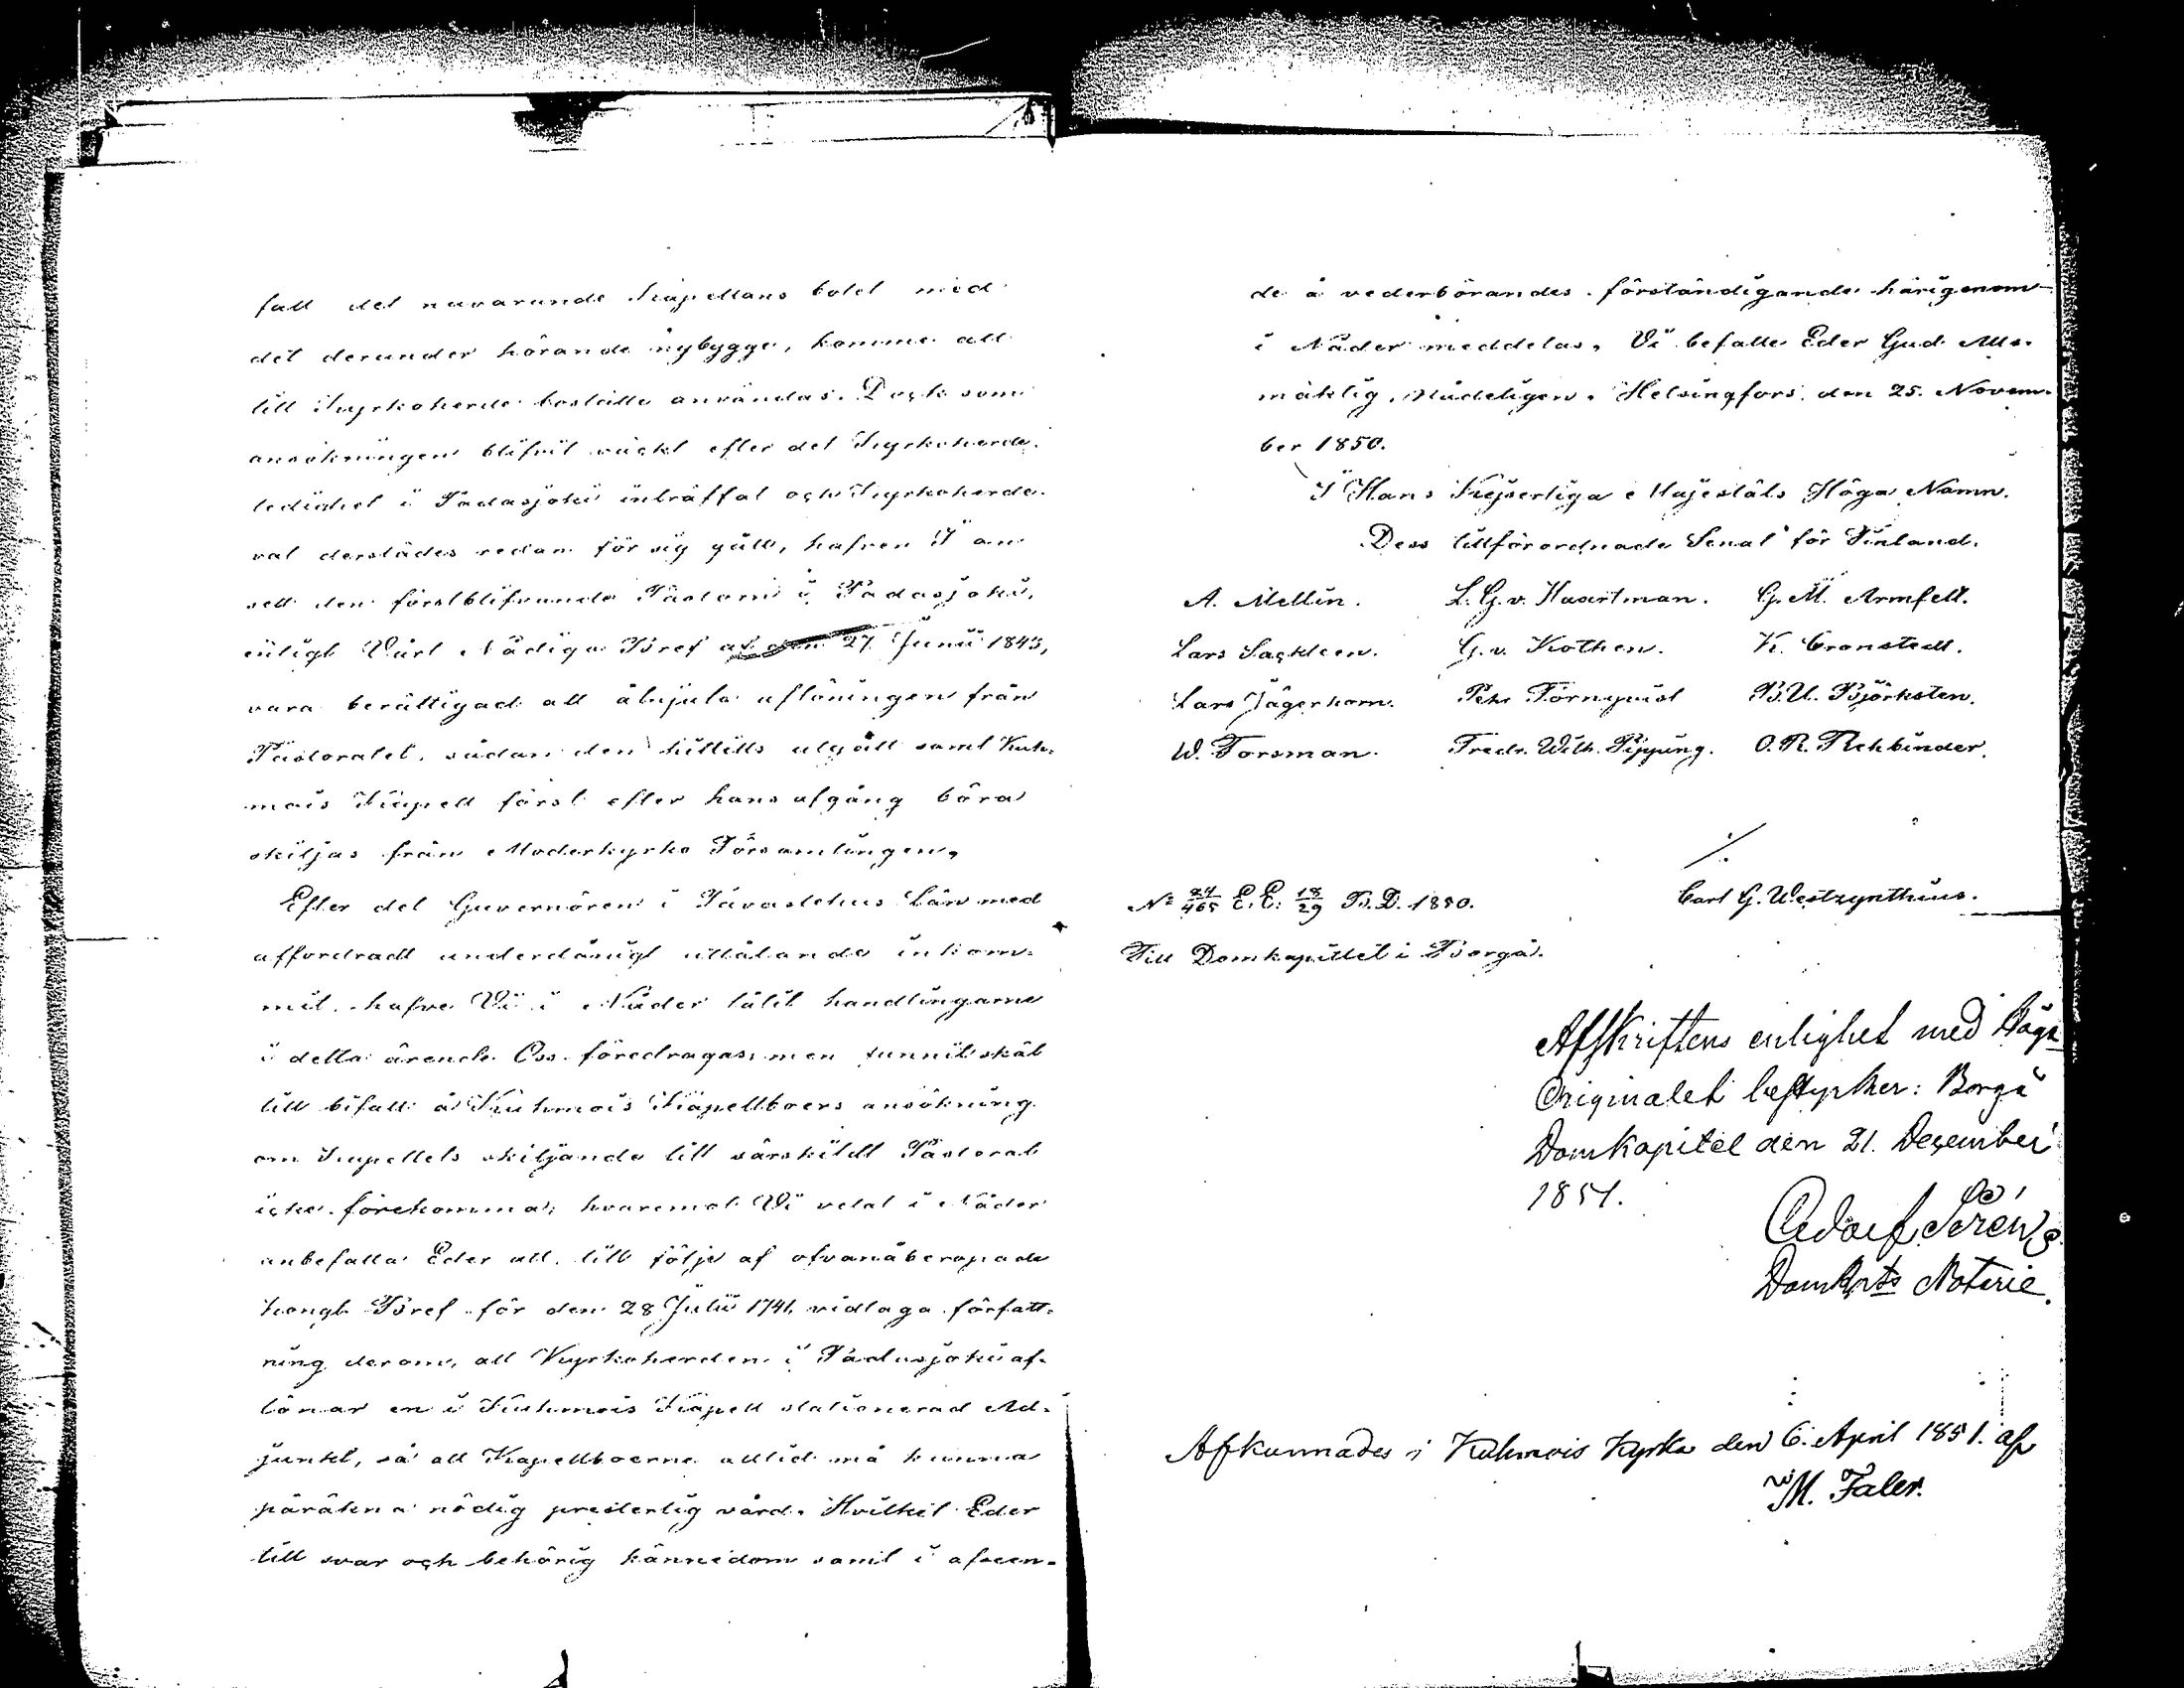 fall det nuvarande Kapellans bolet med
det derunder hörande nybygge, komme att
till Kyrkoherde boställe användas. Dock som
ansökningen blifvit väckt efter det Kyrkoherde
ledighet i Padasjoki inträffat och Kyrkoherde
val derstädes redan för sig gått, hafven I an
sett den förstblifvande Pastorn i Padasjoki,
enligt Vårt Nådiga Bref af den 27 Junii 1843,
vara berättigad att åtnjuta aflöningen från
Pastoratet, sådan den hittills utgått samt Kuh-
mois Kapell först efter hans afgång böra
skiljas från Moderkyrko Församlingen,
Efter det Guvernören i Tavastehus Län med
affordradt underdånigt utlåtande inkom-
mit, hafve Vi i Nåder låtit handlingarne
i detta ärende Oss föredragas, men funnit skäl
till bifall å Kuhmois Kapellboers ansökning
om Kapellets skiljande till särskildt Pastorat
icke förekomma, hvaremot Vi velat i Nåder
anbefalla Eder att, till följe af ofvanåberopade
Kongl. Bref för den 28 Julii 1741, vidtaga författ-
ning derom, att Kyrkoherden i Padasjoki af-
lönar en i Kuhmois Kapell stationerad Ad-
junkt, så att Kapellboerne alltid må kunna
påräkna nödig presterlig vård. Hvilket Eder
till svar och behörig kännedom samt i afseen-
de å vederbörandes förständigande härigenom
i Nåder meddelas, Vi befalle Eder Gud Alls-
mäktig, Nådeligen. Helsingfors, den 25. Novem-
ber 1850.
I Hans Kejserliga Majestäts Höga Namn.
Dess tillförordnade Senat för Finland.
A. Mellin. L. G. v. Haartman. G. M. Armfelt.
Lars Sackleen. G. v. Kothen. K. Cronstedt.
Lars Jägerhorn. Pehr Törnqvist B. U. Björksten.
W. Forsman. Fredr. Wilh. Pipping. O. R. Rehbinder.
Carl G. Westzynthius.
No 24/465 E. E. 18/29 B. D. 1850.
Till Domkapitlet i Borgå.
Afskriftens enlighet med Höga
Originalet bestyrker: Borgå
Domkapitel den 21. December
1851.
Adolf
Domkpts Notarie.
Afkunnades i Kuhmois Kyrka den 6. April 1851. af
M. Faler.